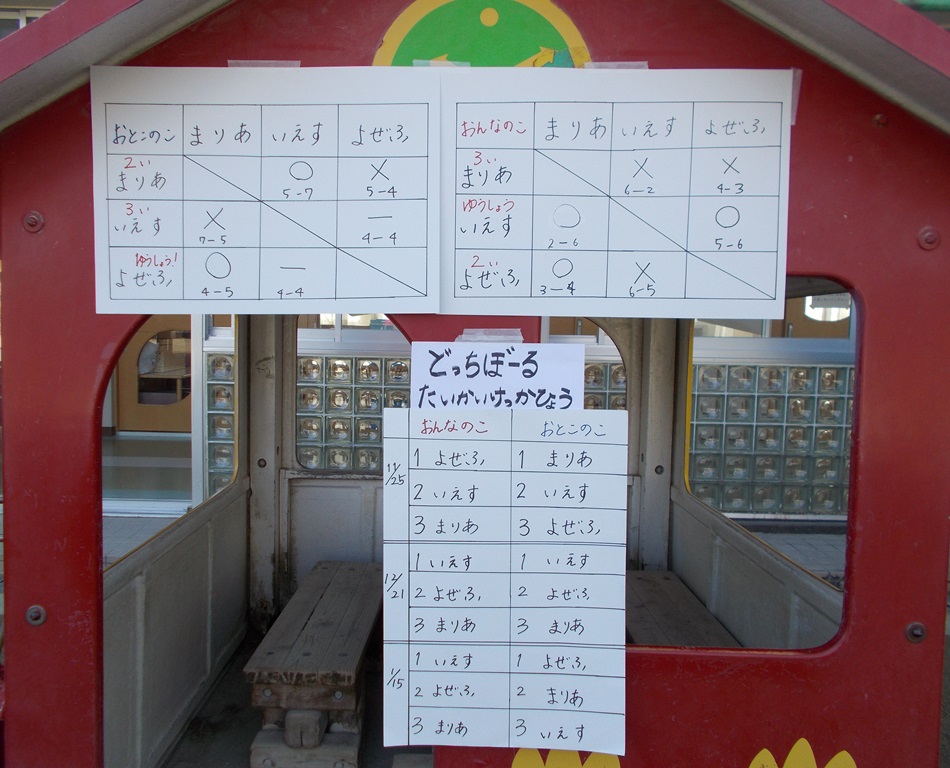 おとこのこ まりあ いえす よぜふ
2い
まりあ ○ ×
5-7 5-4
3い
いえす × —
7-5 4-4
ゆうしょう!
よぜふ ○ —
4-5 4-4
おんなのこ まりあ いえす よぜふ
3い
まりあ × ×
6-2 4-3
ゆうしょう
いえす ○ ○
2-6 5-6
2い
よぜふ ○ ×
3-4 6-5
どっちぼーる
たいかいけっかひょう
おんなのこ おとこのこ
11/25
1 よぜふ 1 まりあ
2 いえす 2 いえす
3 まりあ 3 よぜふ
12/21
1 いえす 1 いえす
2 よぜふ 2 よぜふ
3 まりあ 3 まりあ
1/15
1 いえす 1 よぜふ
2 よぜふ 2 まりあ
3 まりあ 3 いえす